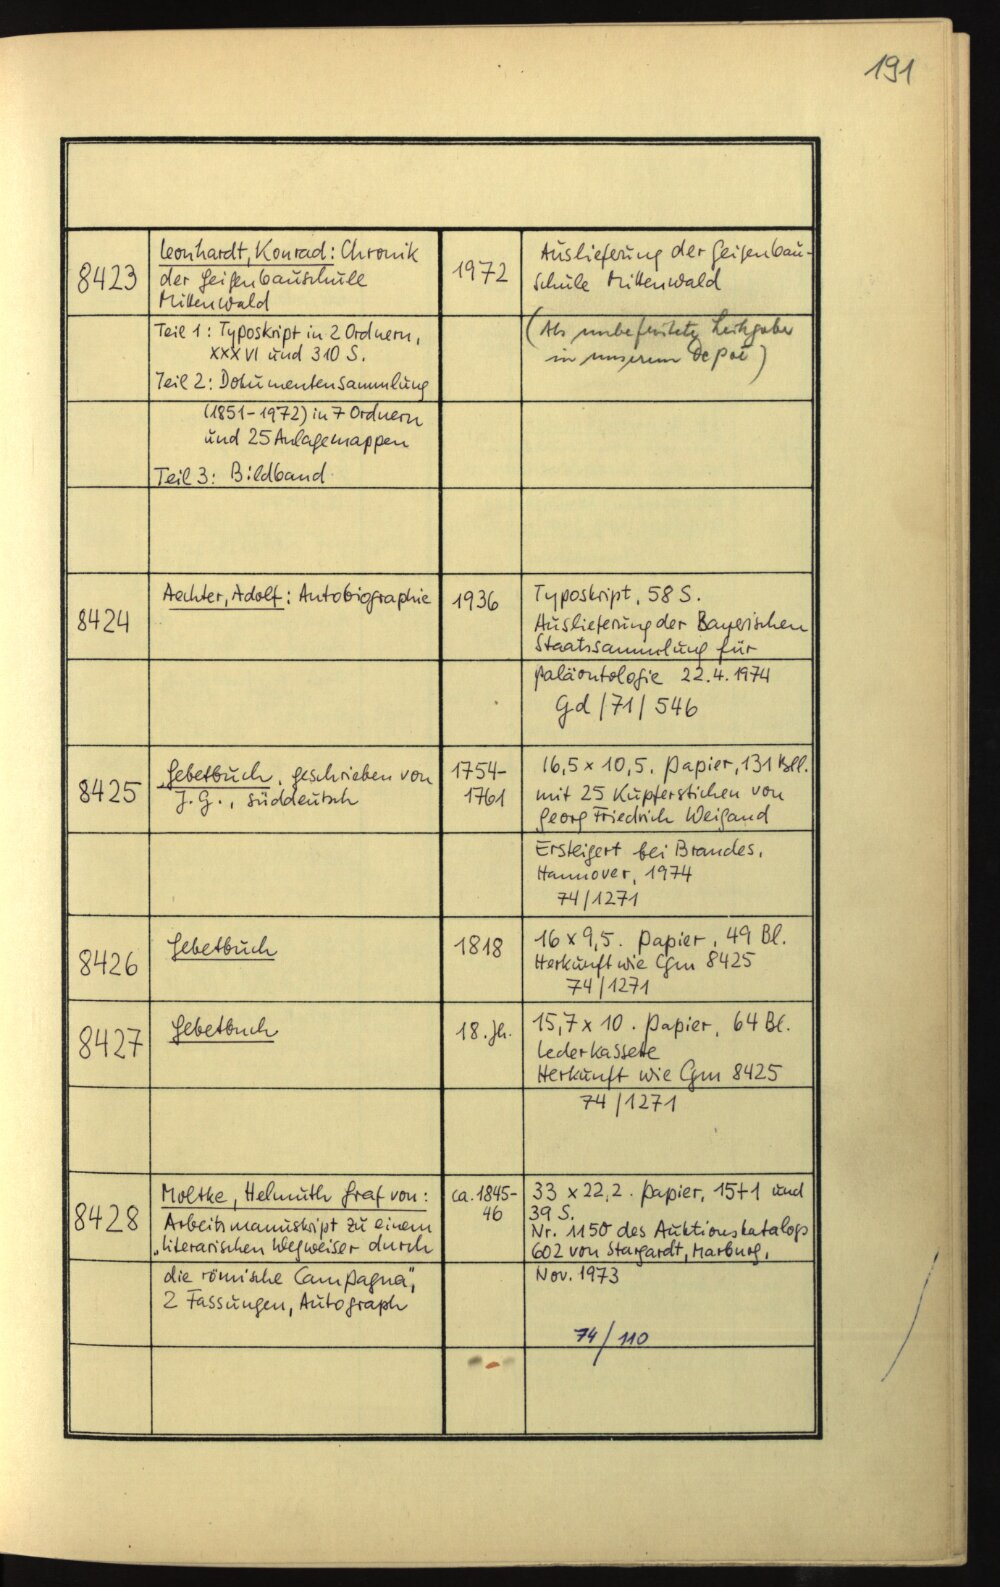 191
8423
Leonhardt, Konrad: Chronik
der Geigenbauschule
Mittenwald
1972
Auslieferung der Geigenbau-
schule Mittenwald
Teil 1: Typoskript in 2 Ordnern,
XXXVI und 310 S.
Teil 2: Dokumentensammlung
(1851-1972) in 7 Ordnern
und 25 Anlagemappen
Teil 3: Bildband
(Als unbefristete Leihgabe
in unserem Depot)
8424
Aechter, Adolf: Autobiographie
1936
Typoskript, 58 S.
Auslieferung der Bayerischen
Staatssammlung für
Paläontologie 22.4.1974
Gd/71/546
8425
Gebetbuch, geschrieben von
J.G., süddeutsch
1754-
1761
16,5 x 10,5. Papier, 131 Bll.
mit 25 Kupferstichen von
Georg Friedrich Weigand
Ersteigert bei Brandes,
Hannover, 1974
74/1271
8426
Gebetbuch
1818
16 x 9,5. Papier, 49 Bl.
Herkunft wie Cgm 8425
74/1271
8427
Gebetbuch
18. Jh.
15,7 x 10. Papier, 64 Bl.
Lederkassette
Herkunft wie Cgm 8425
74/1271
8428
Moltke, Helmuth Graf von:
Arbeitsmanuskript zu einem
„literarischen Wegweiser durch
die römische Campagna",
2 Fassungen, Autograph
ca. 1845-
46
33 x 22,2. Papier, 15+1 und
39 S.
Nr. 1150 des Auktionskatalogs
602 von Stargardt, Marburg,
Nov. 1973
74/110